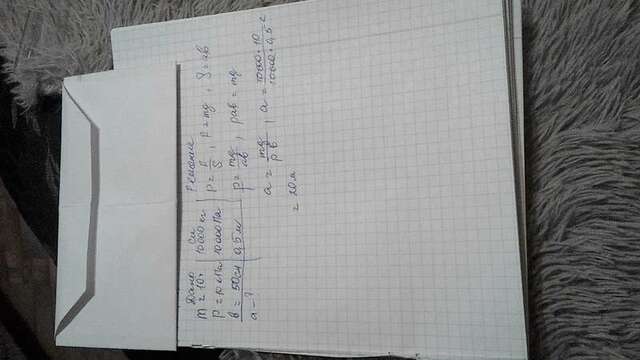 Дано
m = 10т
p = 10 кПа
b = 50см
a - ?
Си
10000 кг
10000 Па
0,5 м
Решение
p = F/S , P = mg , S = ab
p = mg/ab , pab = mg
a = mg/pb , a = 10000·10/10000·0,5 =
= 20м